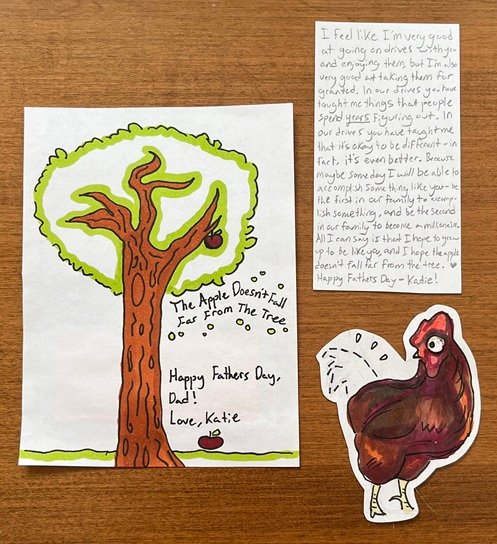 The Apple Doesn't Fall
Far From The Tree
Happy Fathers Day,
Dad!
Love, Katie
I feel like I'm very good
at going on drives with you
and enjoying them, but I'm also
very good at taking them for
granted. In our drives you have
taught me things that people
spend years figuring out. In
our drives you have taught me
that it's okay to be different - in
fact, it's even better. Because
maybe someday I will be able to
accomplish something, like you - be
the first in our family to accomp-
lish something, and be the second
in our family to become a millionaire.
All I can say is that I hope to grow
up to be like you, and I hope the apple
doesn't fall far from the tree. ♥
Happy Fathers Day - Katie!